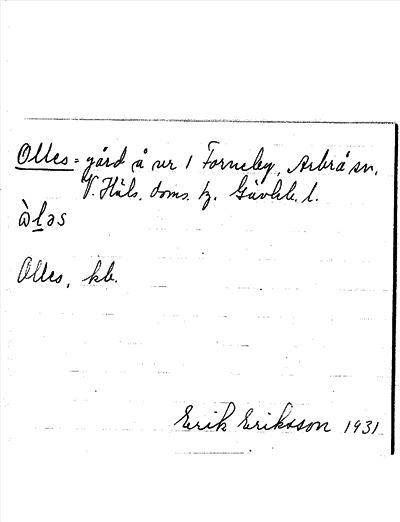 Olles = gård å nr 1 Forneby, Arbrå sn,
V. Häls. doms. tg. Gävleb. l.
àlǝs
Olles, kb.
Erik Eriksson 1931